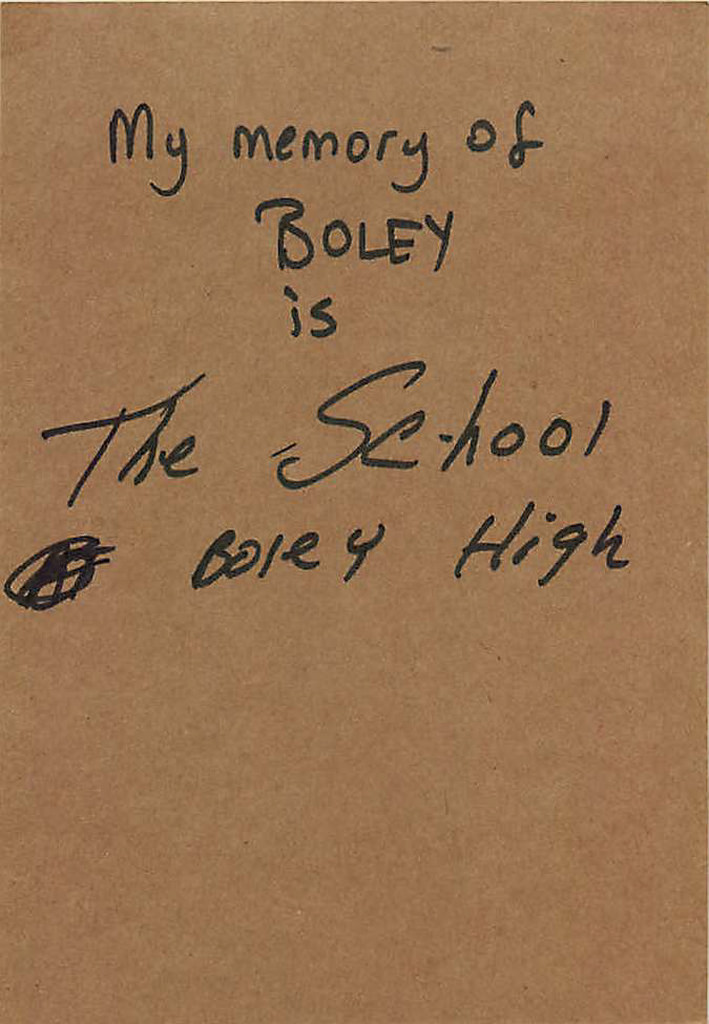 My memory of
BOLEY
is
The School
Boley High